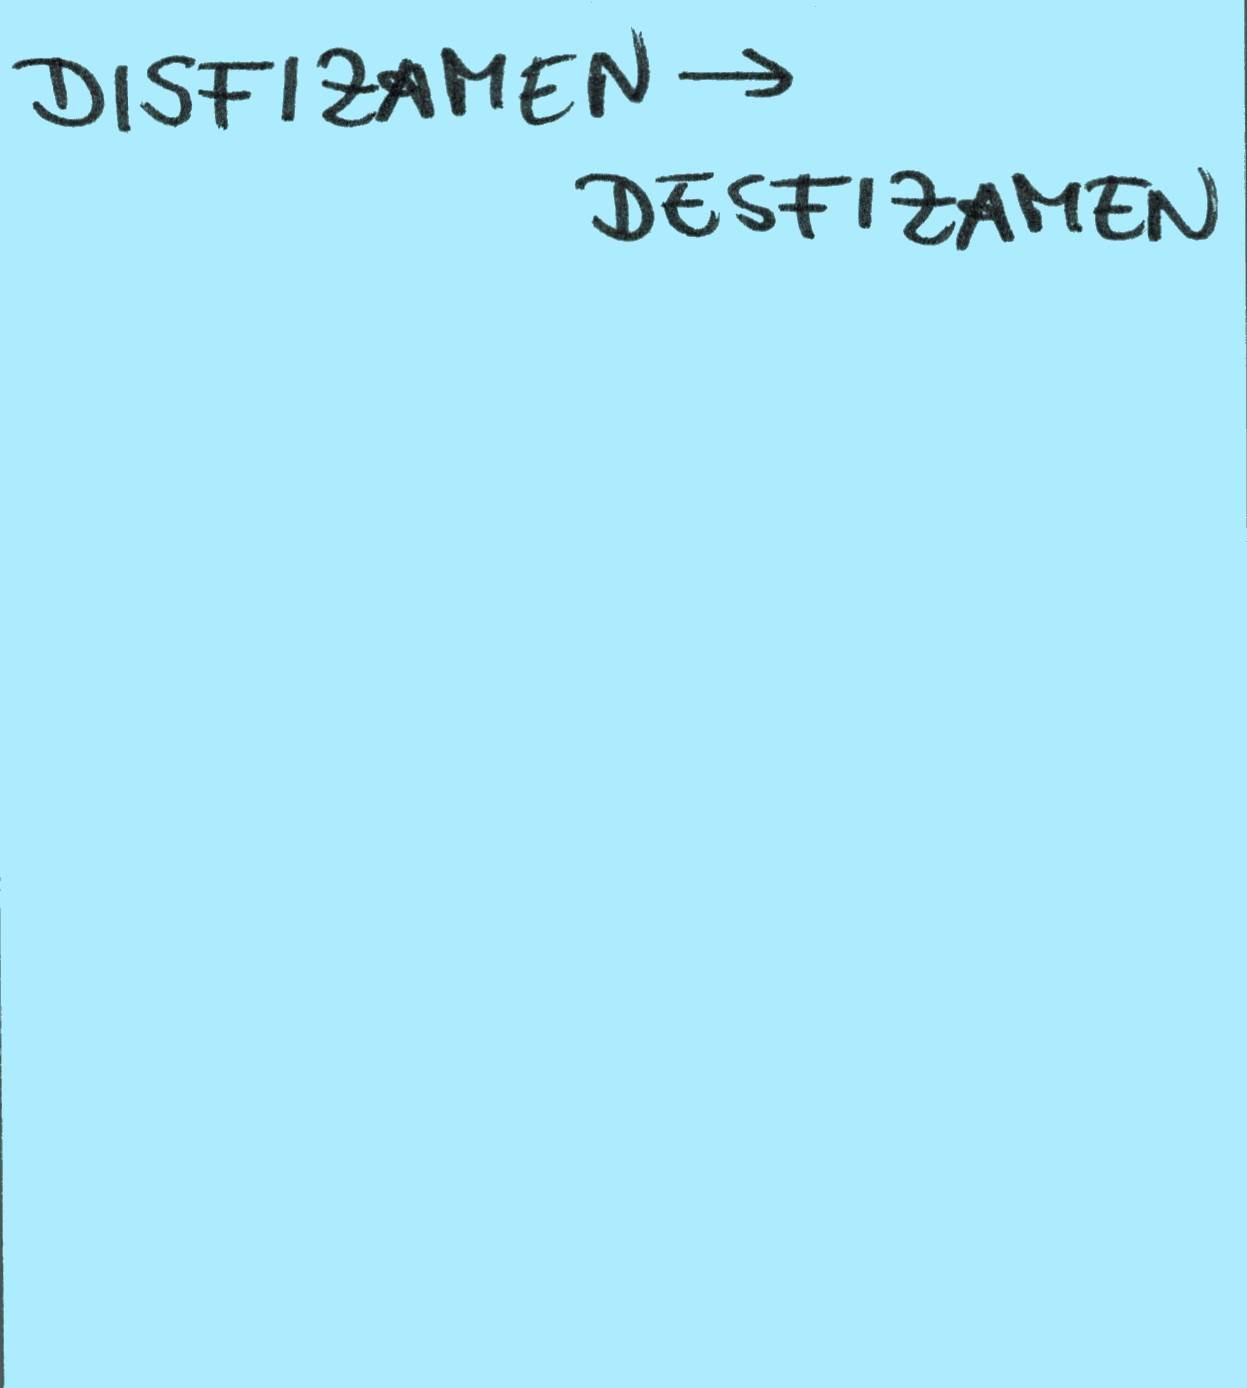 DISFIZAMEN →
DESFIZAMEN